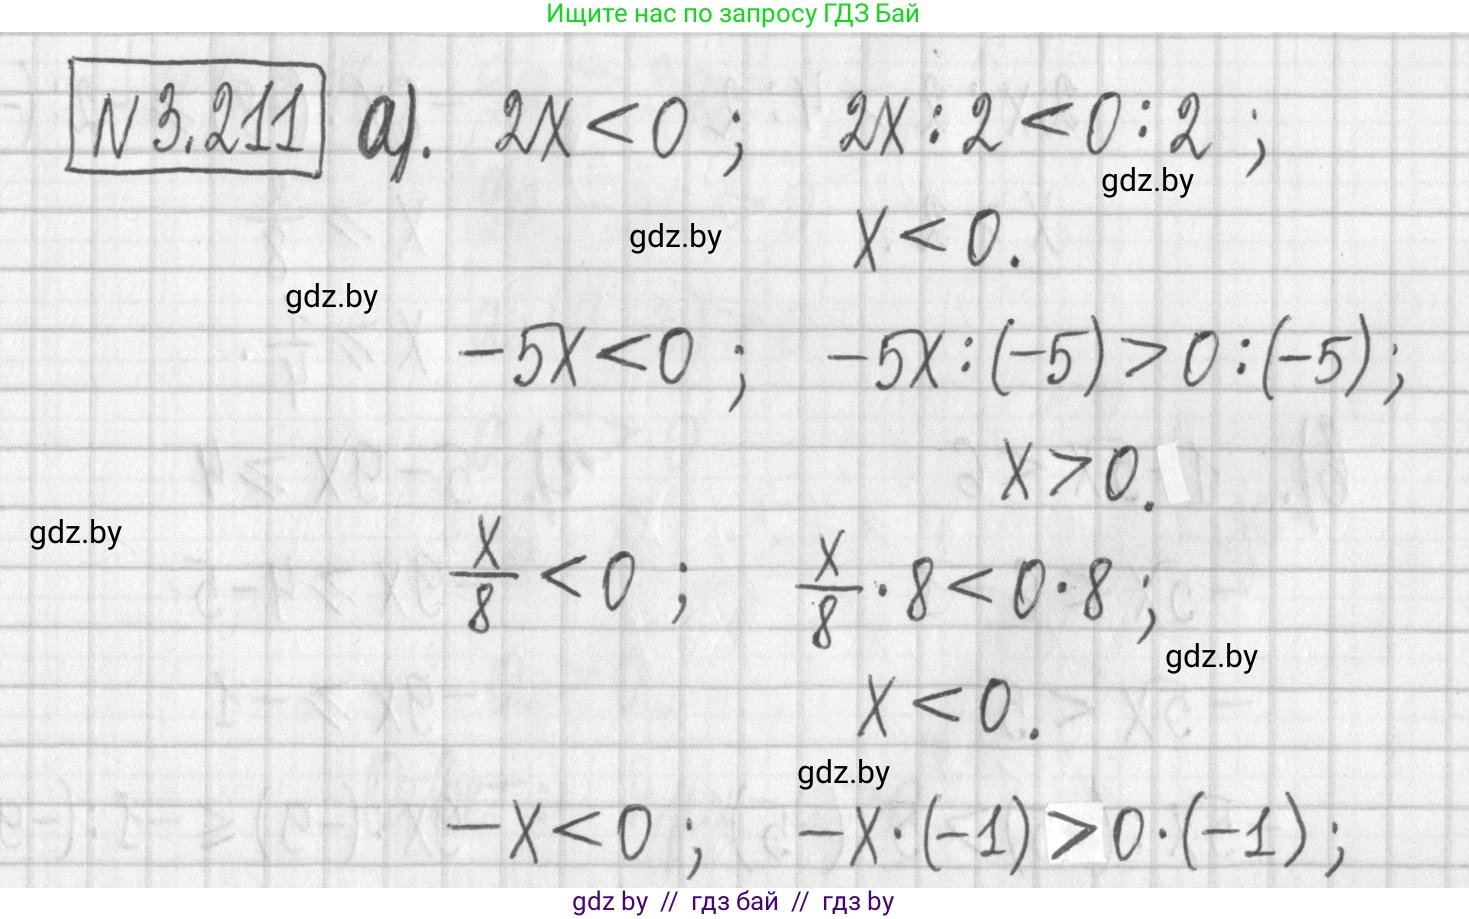 Ищите нас по запросу ГДЗ Бай
N 3.211 а). 2x < 0 ; 2x : 2 < 0 : 2 ;
gdz.by
gdz.by
x < 0.
gdz.by
-5x < 0 ; -5x : (-5) > 0 : (-5) ;
x > 0.
gdz.by
x/8 < 0 ; x/8 · 8 < 0 · 8 ;
gdz.by
x < 0.
gdz.by
-x < 0 ; -x · (-1) > 0 · (-1) ;
gdz by // гдз бай // гдз by